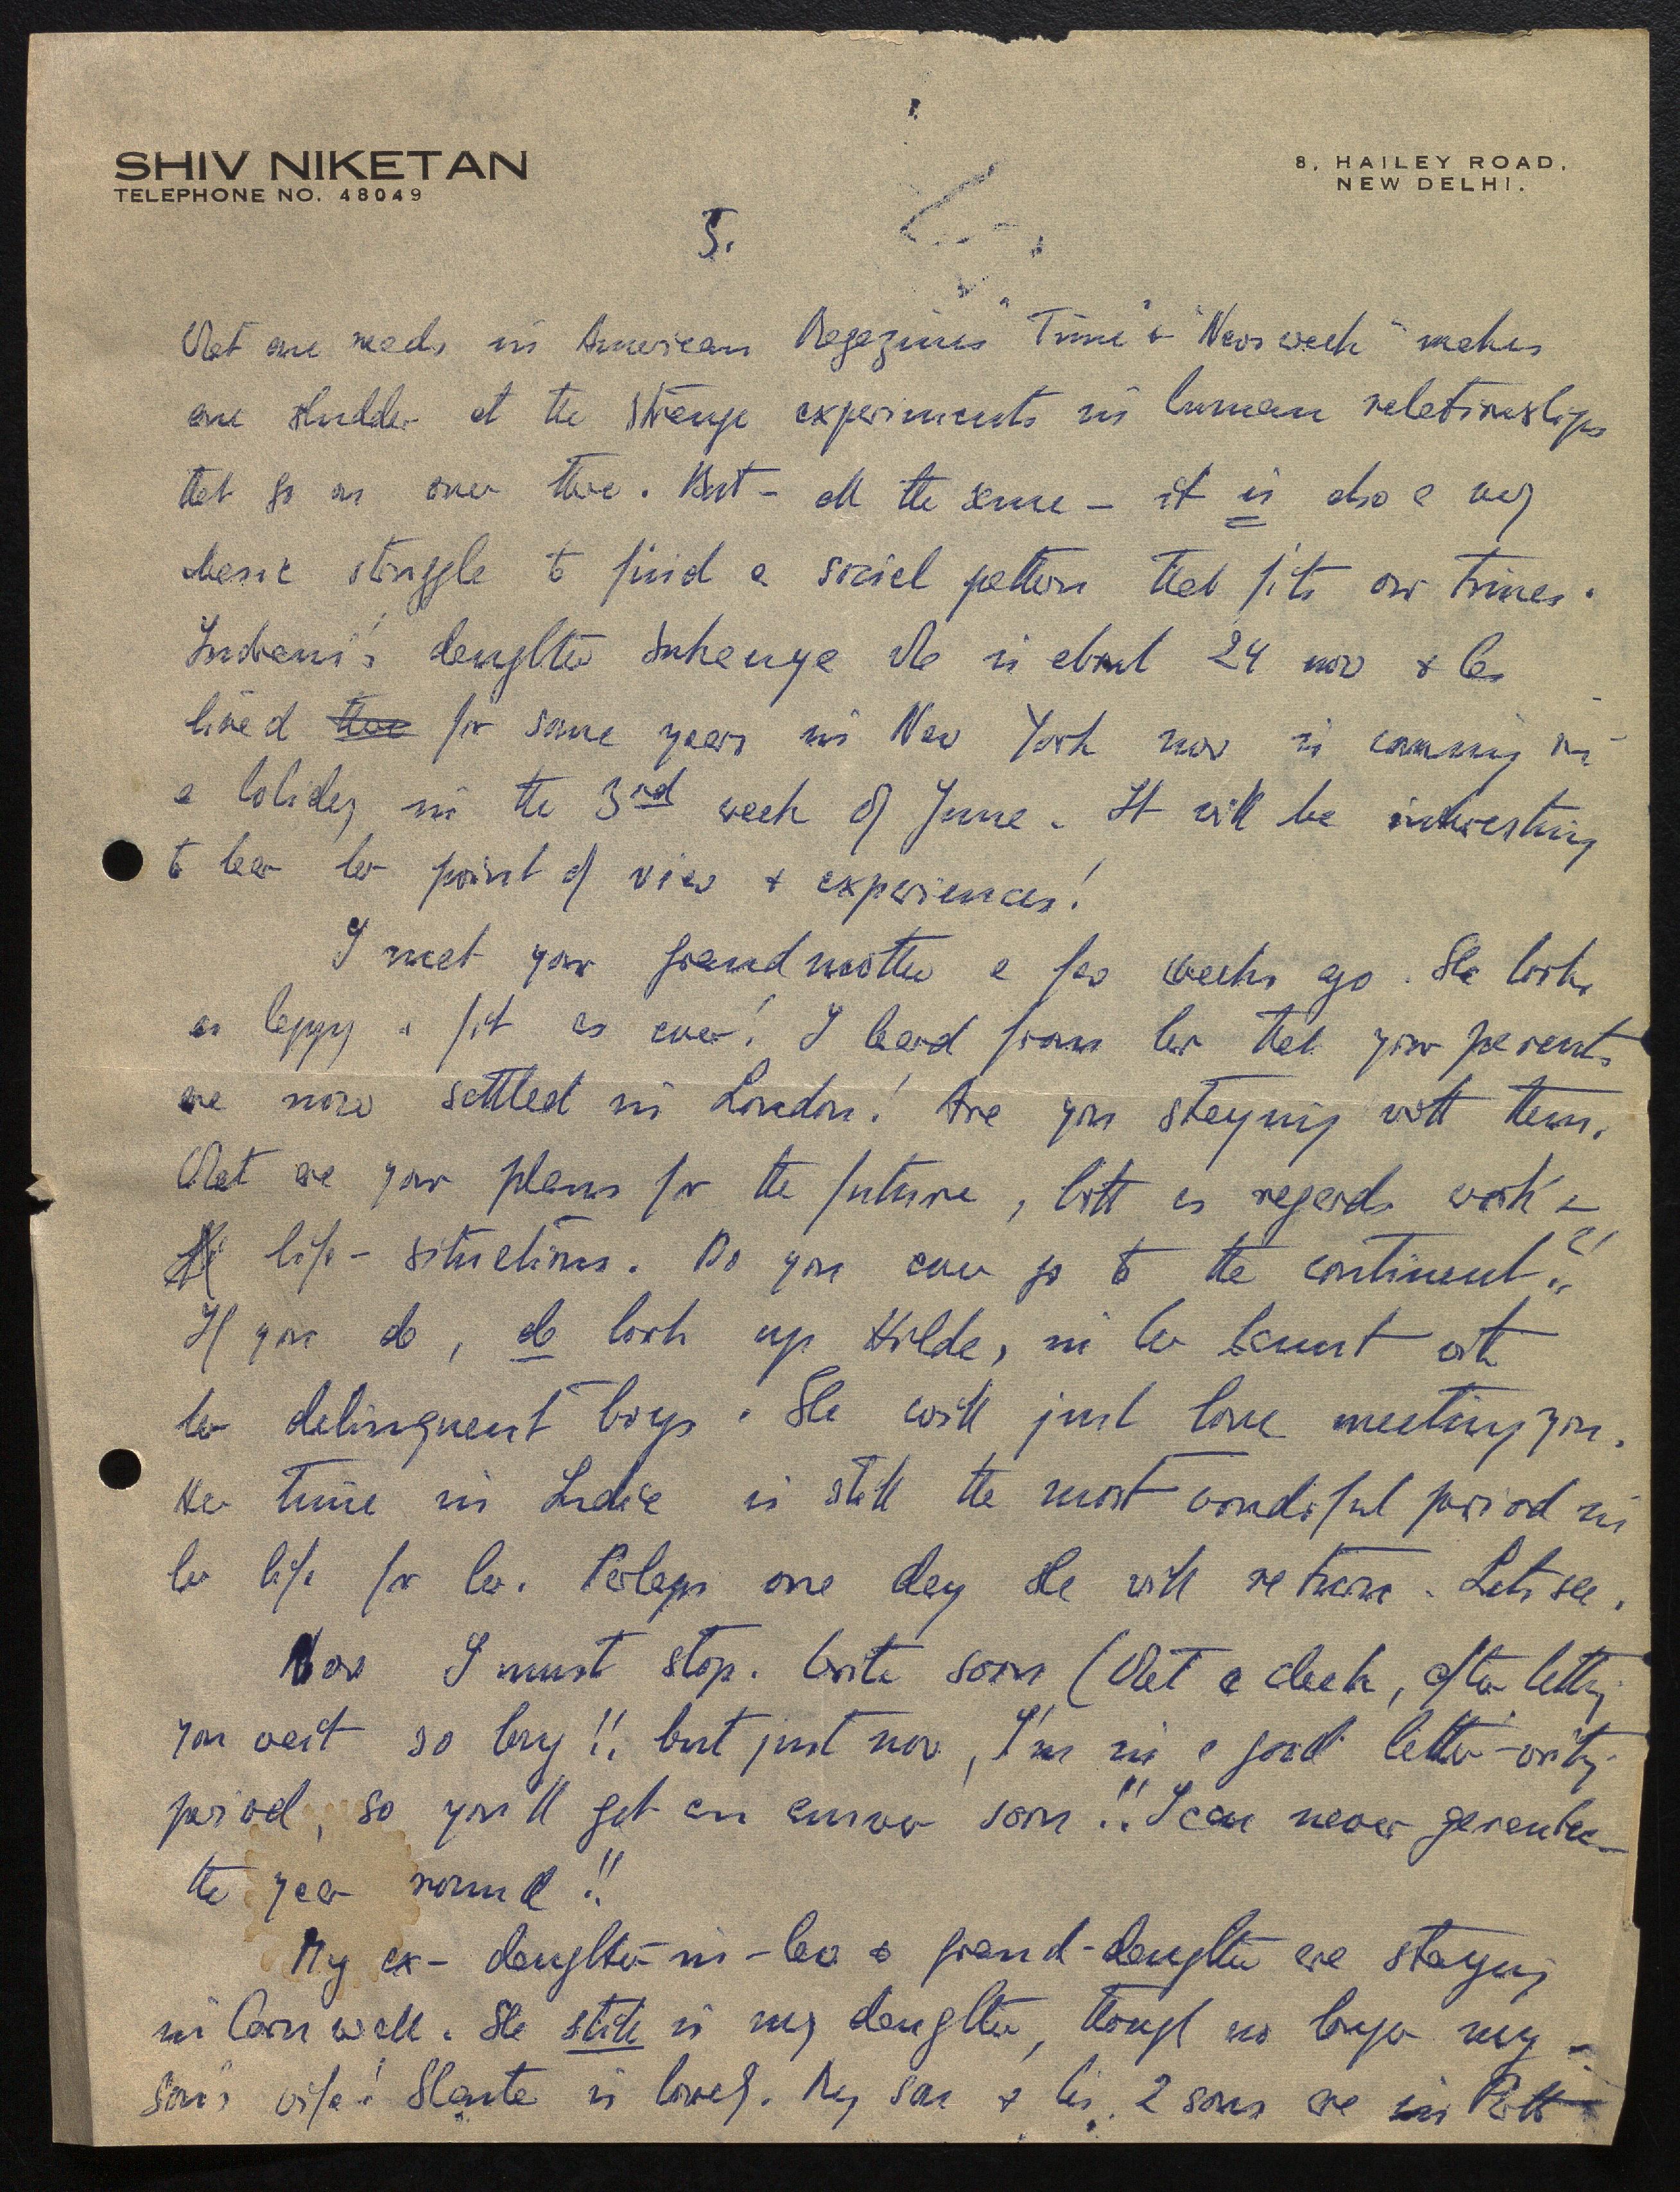 SHIV NIKETAN
TELEPHONE NO. 48049
8, HAILEY ROAD,
NEW DELHI.
5.
What one reads in American Magazines "Time" & "Newsweek" makes
one shudder at the strange experiments in human relationships
that go on over there. But - all the same - it is also a very
basic struggle to find a social pattern that fits our times.
Indrani's daughter Sukanya who is about 24 now & has
lived there for some years in New York now is coming on
a holiday in the 3rd week of June. It will be interesting
to hear her point of view & experiences!
I met your grandmother a few weeks ago. She looks
as happy & fit as ever! I heard from her that your parents
are now settled in London! Are you staying with them.
What are your plans for the future, both as regards work &
life-situations. Do you ever go to the continent?
If you do, do look up Hilde, in her haunt with
her delinquent boys. She will just love meeting you.
Her time in India is still the most wonderful period in
her life for her. Perhaps one day she will return. Lets see.
Now I must stop. Write soon (What a cheek, after letting
you wait so long!! but just now, I'm in a good letter-writing
period, so you'll get an answer soon!! I can never guarantee
the year round!!
My ex-daughter-in-law & grand-daughter are staying
in Cornwall. She still is my daughter, though no longer my
son's wife! Shanta is lovely. My son & his 2 sons are in